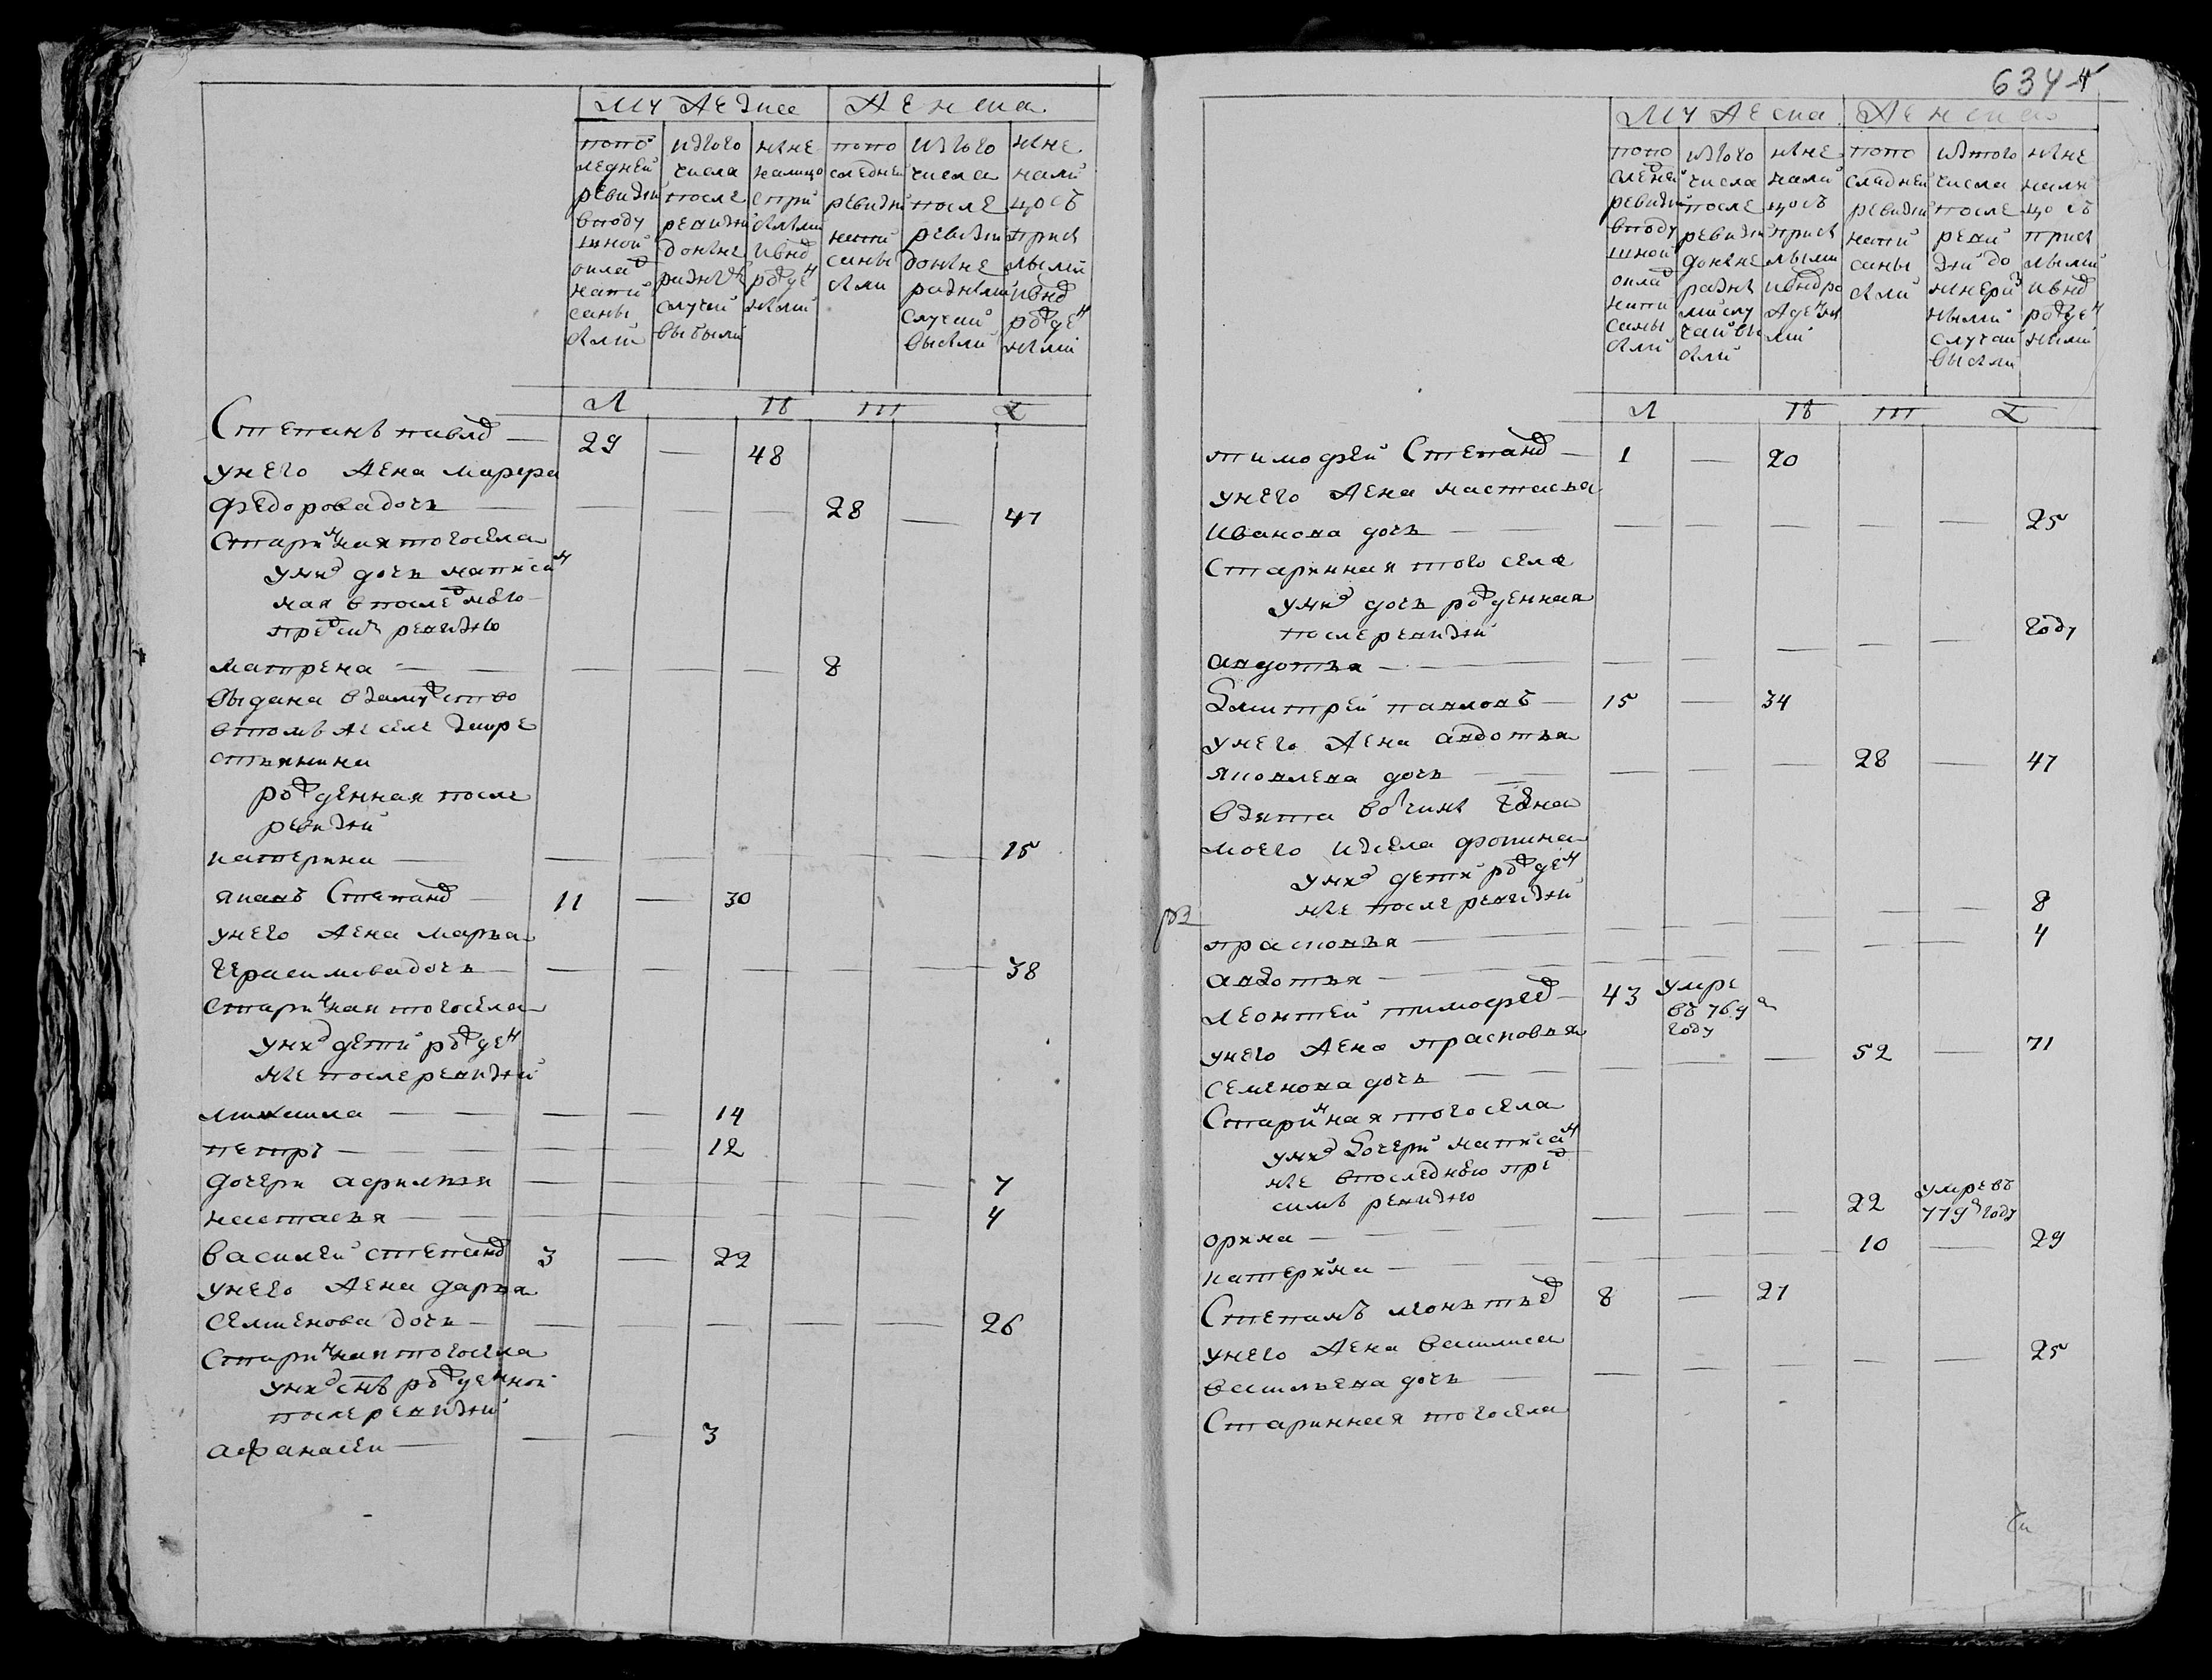 мужеска
женска
попо
следней
ревизии
в поду
шной
оклад
напи
саны
были
из того
числа
после
ревизии
до ныне
разны
случаи
выбыли
ныне
на лицо
с при
былми
и внов
рожден
ными
попо
следней
ревизии
напи
саны
были
из того
числа
после
ревизии
до ныне
разными
случаи
выбыли
ныне
нали
цо съ
при
былыми
и внов
рожден
ными
Степанъ павлов — 29 — 48
у него жена марфа
федорова дочь — 28 — 47
старинная того села
у них дочь написан
ная в последнюю
пред сим ревизию
матрена — 8
выдана в замужство
в томъ же селе за кре
стьянина
рожденная после
ревизии
катерина — 15
яковъ Степанов 11 — 30
у него жена марья
Герасимова дочь — 38
старинная того села
у них дети рожден
ные после ревизии
михаила — 14
петръ — 12
дочери афимья — 7
настасья — 4
василей степанов 3 — 22
у него жена дарья
семенова дочь — 26
старинная того села
у них снъ рожденной
после ревизии
афанасеи — 3
634
мужеска
женска
попо
следней
ревизии
в поду
шной
оклад
напи
саны
были
из того
числа
после
ревизии
до ныне
разны
ми слу
чаи вы
были
ныне
нали
цо съ
при
былыми
и внов ро
жденны
ми
попо
следней
ревизии
напи
саны
были
из того
числа
после
реви
зии до
ныне раз
ными
случаи
выбыли
ныне
нали
цо съ
при
былыми
и внов
рожден
ными
тимофей Степанов — 1 — 20
у него жена настасья
Иванова дочь — 25
Старинная того села
у них дочь рожденная
после ревизии
авдотья — году
Дмитрей павловъ — 15 — 34
у него жена авдотья
яковлева дочь — 28 — 47
взята в вотчине
моего из села фокина
у них дети рожден
ные после ревизии
прасковья — 8
авдотья — 4
леонтей тимофеев — 43 умре
въ 769 м
году
у него жена прасковья 52 — 71
семенова дочь
Старинная того села
у них дочери написан
ные в последнюю пред
симъ ревизию
орина — 22 умре въ
779 году
катерина — 10 — 29
Степанъ леонтьев 8 — 27
у него жена василиса
васильева дочь — 25
Старинная того села